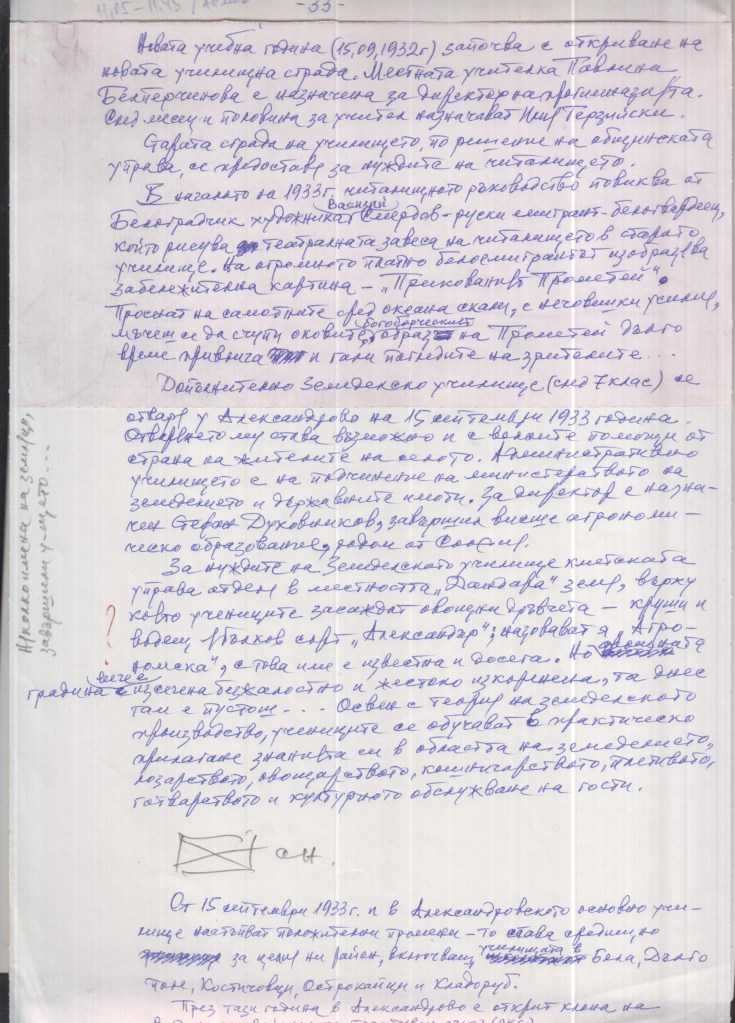 -33-
Новата учебна година (15.09.1932г) започва с откриване на
новата училищна сграда. Местната учителка Павлина
Белперчинова е назначена за директор на прогимназията.
След месец и половина за учител назначават Илия Герзийски.
Старата сграда на училището, по решение на общинската
управа, се предоставя за нуждите на читалището.
В началото на 1933г. читалищното ръководство повиква от
Белоградчик художникът Василий Смердов - руски емигрант-белогвардеец,
който рисува театралната завеса на читалището в старото
училище. На огромното платно белоемигрантът изобразява
забележителна картина - „Прикованият Прометей".
Проснат на самотните сред океана скали, с нечовешки усилия,
мъчещ се да счупи оковите, богоборческият образ на Прометей дълго
време привлича и гали погледите на зрителите...
Допълнително Земеделско училище (след 7 клас) се
отваря у Александрово на 15 септември 1933 година.
Откриването му става възможно и с волните помощи от
страна на жителите на селото. Административно
училището е на подчинение на министерството на
земеделието и държавните имоти. За директор е назна-
чен Стефан Духовников, завършил висше агрономи-
ческо образование, родом от София.
За нуждите на Земеделското училище кметската
управа отделя в местността „Дандара" земя, върху
която учениците засаждат овощни дръвчета - круши и
ябълков сорт „Александър"; назовават я „Агро-
номска", с това име е известна и досега. Но овощната
градина вече е изсечена безжалостно и жестоко изкоренена, та днес
там е пустош... Освен с теория на земеделското
производство, учениците се обучават в практическо
прилагане знанията си в областта на земеделието,
лозарството, овощарството, кошничарството, плетивото,
готварството и културното обслужване на гости.
Няколко имена на земеделци,
завършили у-щето...
?
сн.
От 15 септември 1933г. и в Александровското основно учи-
лище настъпват положителни промени - то става средищно
за целия ни район, включващ училищата в Бела, Дълго
поле, Костичовци, Острокапци и Кладоруб.
През тази година в Александрово е открит клона на